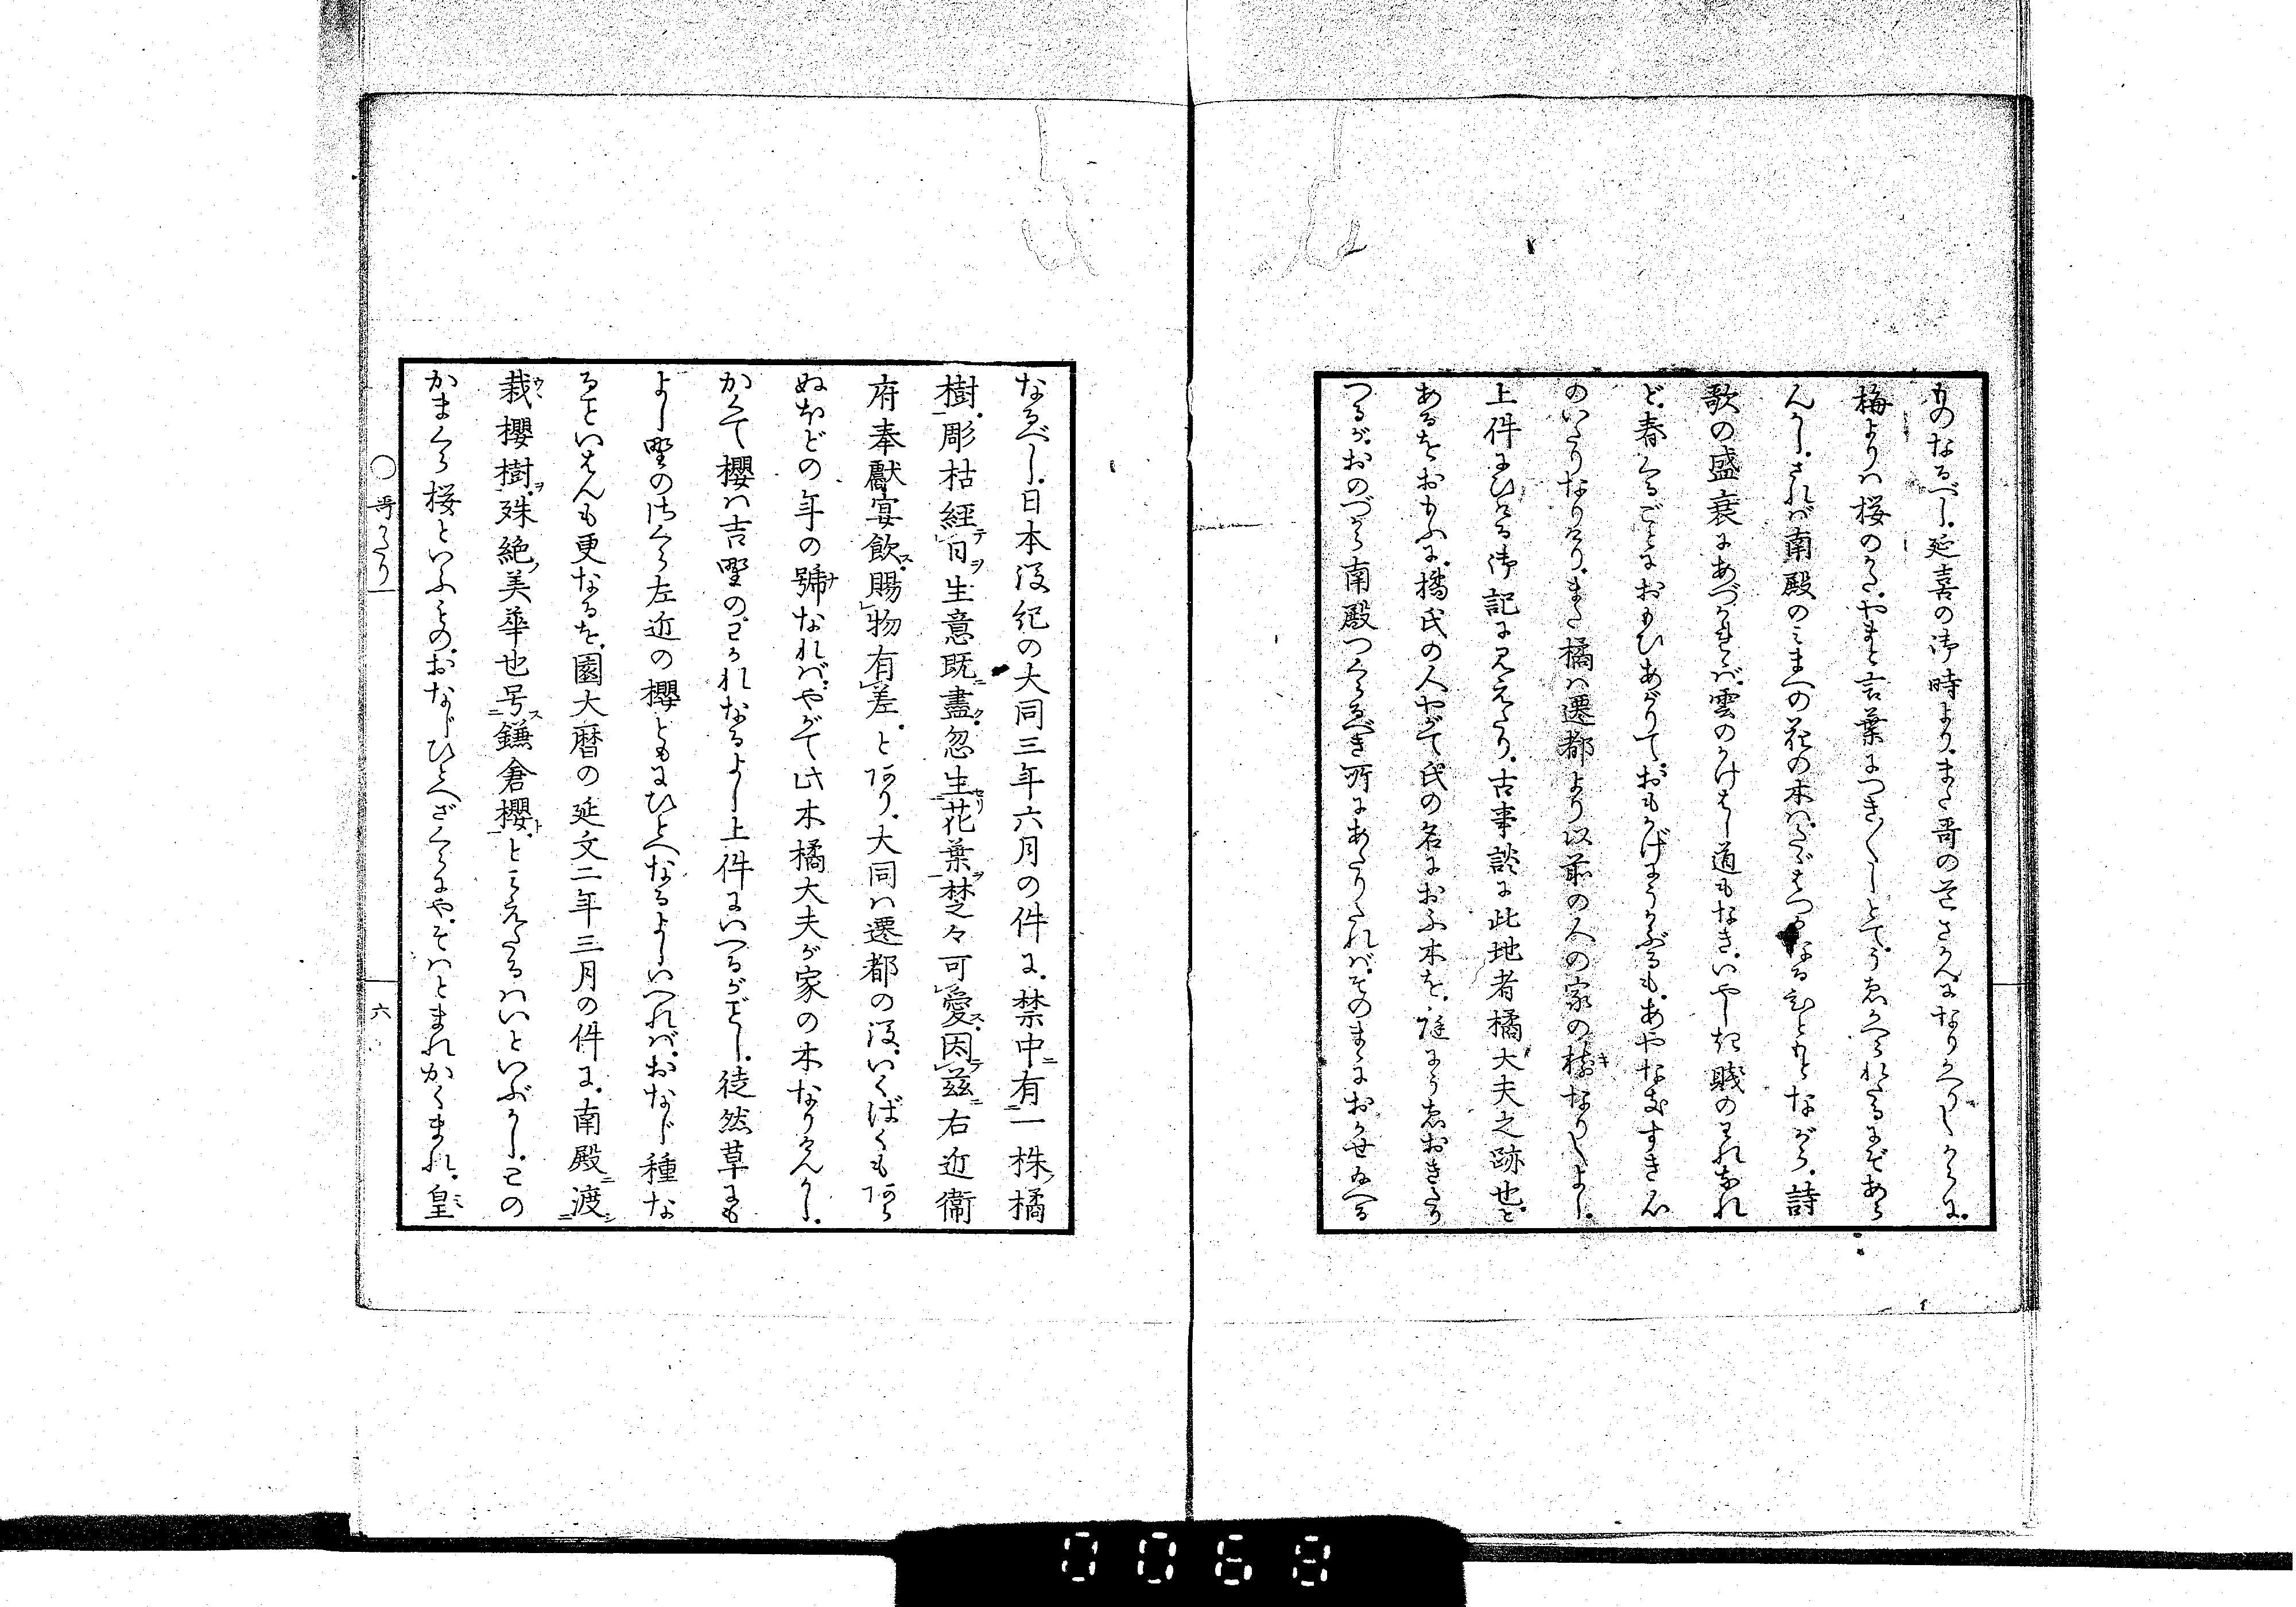 ものなるべし。延喜の御時より。また哥の道さかんになりかへりしからに。
梅よりは桜のかた。やまと言葉につき〳〵しとて。うゑかへられたるにぞあら
んかし。されば南殿のみまへの花の木は。たゞはつかなるひともとながら。詩
歌の盛衰にあづかれゝば。雲のかけはし道もなき。いやしき賤のわれなれ
ど。春くるごとにおもひあがりて。おもかげにうかぶるも。あやなきすき心
のいたりなりけり。また橘は遷都より以前の人の家の樹なりしよし。
上件にひける御記に見えたり。古事談に此地者橘大夫之跡也と
あるをおもふに。橘氏の人やがて氏の名におふ木を。庭にうゑおきたり
つるが。おのづから南殿つくるべき所にあたりたれば。そのまゝにおかせ給へる
なるべし。日本後紀の大同三年六月の件に。禁中ニ有ニ一株ノ橘
樹一。彫枯経テレ日ヲ生意既ニ盡ク。忽生ニセリ花葉ヲ一。楚々可レ愛ス。因テレ茲ニ右近衞
府奉獻宴飲ス。賜レ物有レ差。とあり。大同は遷都の後。いくばくもあら
ぬほどの年の號ナなれば。やがて此木橘大夫が家の木なりけんかし。
かくて櫻は吉野のわかれなるよし上件にいへるがごとし。徒然草にも
よし野のさくら左近の櫻ともにひとへなるよしいへれば。おなじ種な
ることいはんも更なるを。園大暦の延文二年三月の件に。南殿ニ渡ニシ
栽ウヽ櫻樹ヲ一。殊ノ絶美華也号ニス鎌倉櫻ト一。とみえたるはいといぶかし。この
かまくら桜といふもの。おなじひとへざくらにや。そはとまれかくまれ。皇ミ
〇哥かたり
六
0068